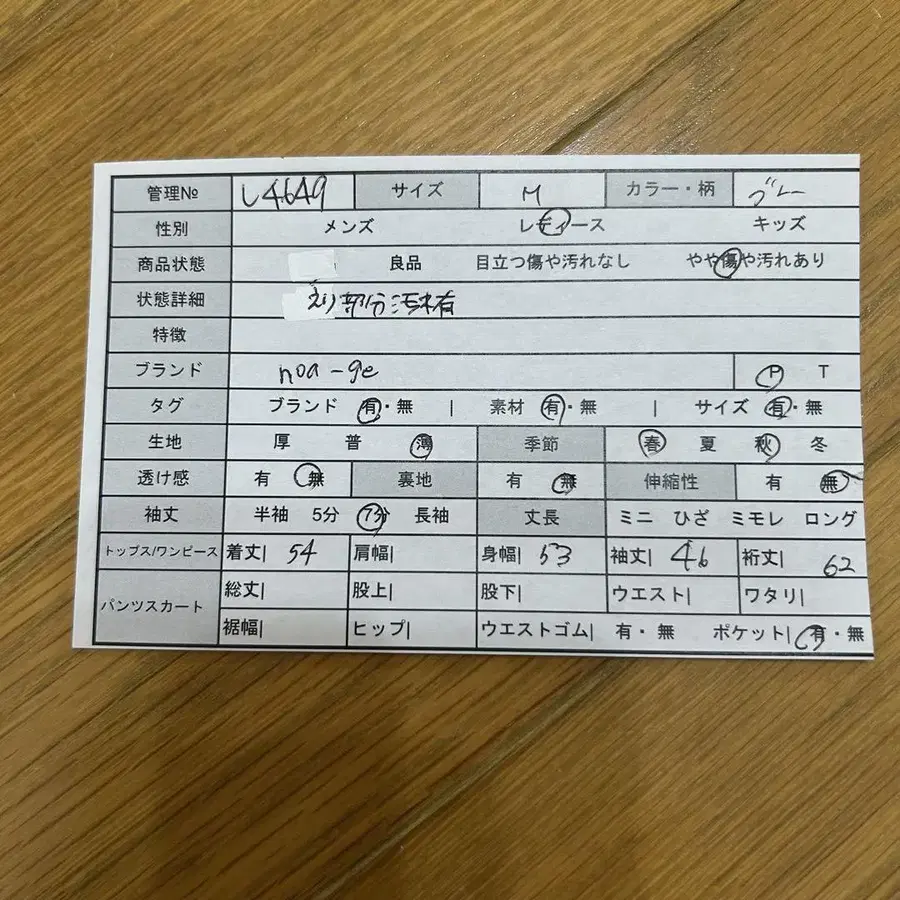 管理№ し4649 サイズ M カラー・柄 ブルー
性別 メンズ レディース キッズ
商品状態 良品 目立つ傷や汚れなし やや傷や汚れあり
状態詳細 えり部分汚れ有
特徴
ブランド noa-ge P T
タグ ブランド 有・無 | 素材 有・無 | サイズ 有・無
生地 厚 普 薄 季節 春 夏 秋 冬
透け感 有 無 裏地 有 無 伸縮性 有 無
袖丈 半袖 5分 7分 長袖 丈長 ミニ ひざ ミモレ ロング
トップス/ワンピース 着丈| 54 肩幅| 身幅| 53 袖丈| 46 裄丈| 62
パンツスカート 総丈| 股上| 股下| ウエスト| ワタリ|
裾幅| ヒップ| ウエストゴム| 有・無 ポケット| 有・無